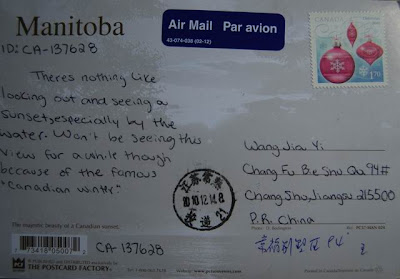 Manitoba
ID: CA-137628
Theres nothing like
looking out and seeing a
sunset, especially by the
water. Won't be seeing this
view for a while though
because of the famous
"Canadian winter."
Air Mail Par avion
43-074-039 (02-12)
CANADA
1.70
Wang Jia Yi
Chang Fu Bie Shu Qu 94#
Chang Shu, Jiangsu 215500
P.R. China
江苏常熟
2010.12.14.8
The majestic beauty of a Canadian sunset.
CA-137628
THE POSTCARD FACTORY
73415 05007